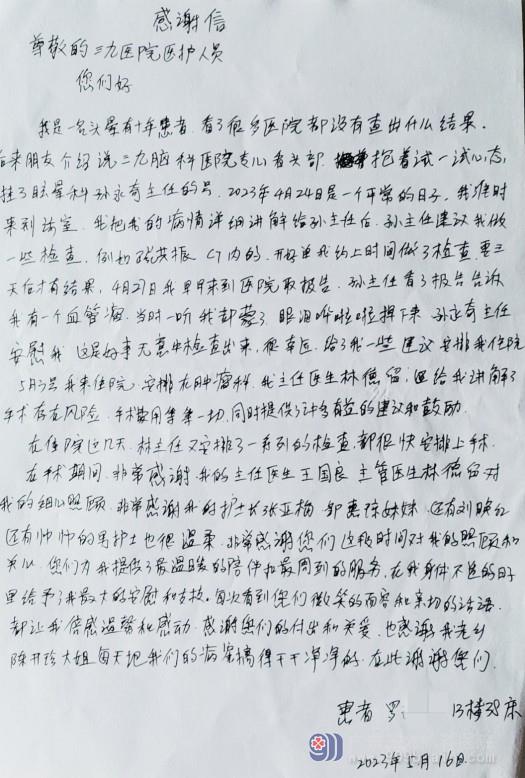 感谢信
尊敬的三九医院医护人员
您们好
我是一名头晕有十年患者.看了很多医院都没有查出什么结果.
后来朋友介绍说三九脑科医院专心看头部 抱着试一试心态,
挂了眩晕科孙永奇主任的号.2023年4月24日是一个平常的日子,我准时
来到诊室.我把我的病情详细讲解给孙主任后.孙主任建议我做
一些检查.例如磁共振 CT内的.开好单我约上时间做了检查要三
天后才有结果,4月27日我早早来到医院取报告.孙主任看了报告告诉
我有一个血管瘤.当时一听我都蒙了.眼泪哗啦啦掉下来 孙永奇主任
安慰我 这是好事无意中检查出来,很幸运.给了我一些建议安排我住院
5月3号我来住院.安排在肿瘤科.我主任医生林德留 给我讲解了
手术存在风险.手术费用等等一切.同时提供了许多有益的建议和鼓励.
在住院这几天.林主任又安排了一系列的检查.都很快安排上手术.
在手术期间.非常感谢我的主任医生王国良 主管医生林德留对
我的细心照顾.非常感谢我的护士长张亚梅 郭惠 妹妹.还有刘晓红
还有帅帅的男护士也很温柔.非常感谢您们这段时间对我的照顾和
关心.您们为我提供了最温暖的陪伴和最周到的服务.在我身体不适的日子
里给予了我最大的安慰和支持.每次看到您们微笑的面容和亲切的话语.
都让我倍感温馨和感动.感谢您们的付出和关爱.也感谢我老乡
陈开珍大姐每天把我们的病室搞得干干净净的.在此谢谢您们.
患者 罗 13楼38床
2023年5月16日